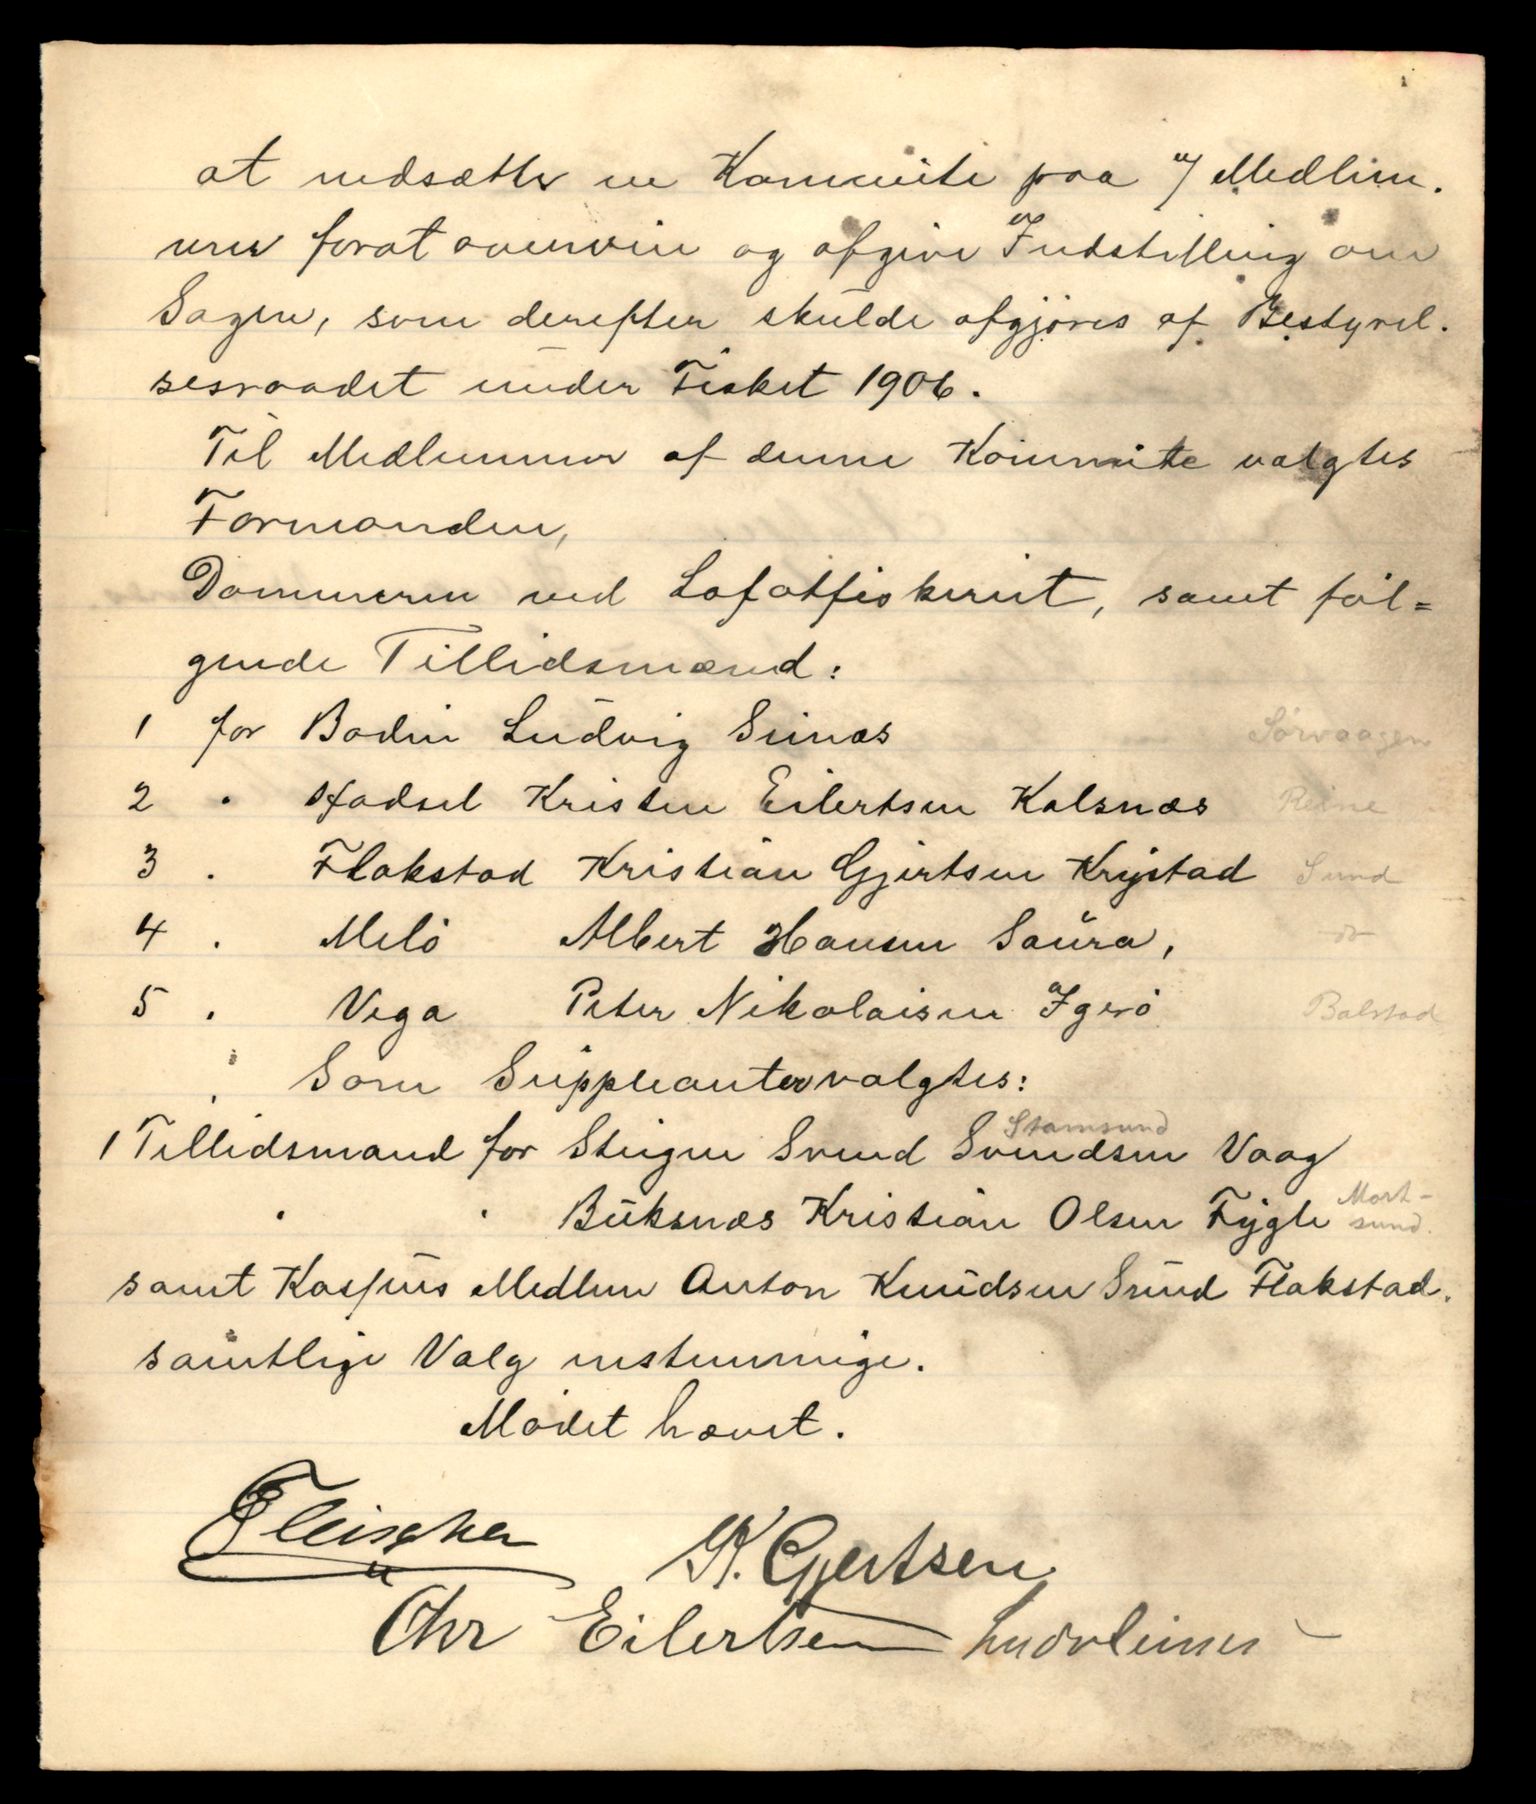 at nedsætte en Kommite paa 7 Medlem.
mer forat overveie og afgive Indstilling om
Sagen, som derefter skulde afgjøres af Bestyrel.
sesraadet under Fisket 1906.
Til Medlemmer af denne Kommite valgtes
Formanden,
Dommeren ved Lofotfiskeriet, samt føl=
gende Tillidsmænd:
1 for Bodin Ludvig Seines Sørvaagen
2 " Hadsel Kristen Eilertsen Kalsnæs Reine
3 " Flakstad Kristian Gjertsen Krystad Sund
4 " Melø Albert Hansen Saura, do
5 " Vega Peter Nikolaisen Igerø Balstad
Som Suppleanter valgtes:
Stamsund
1 Tillidsmand for Steigen Svend Svendsen Vaag
" " Buksnæs Kristian Olsen Fygle Mort-
sund.
samt Kasjens Medlem Anton Knudsen Sund Flakstad.
samtlige Valg enstemmige.
Mødet hævet.
Fleischer K. Gjertsen
Chr Eilertsen